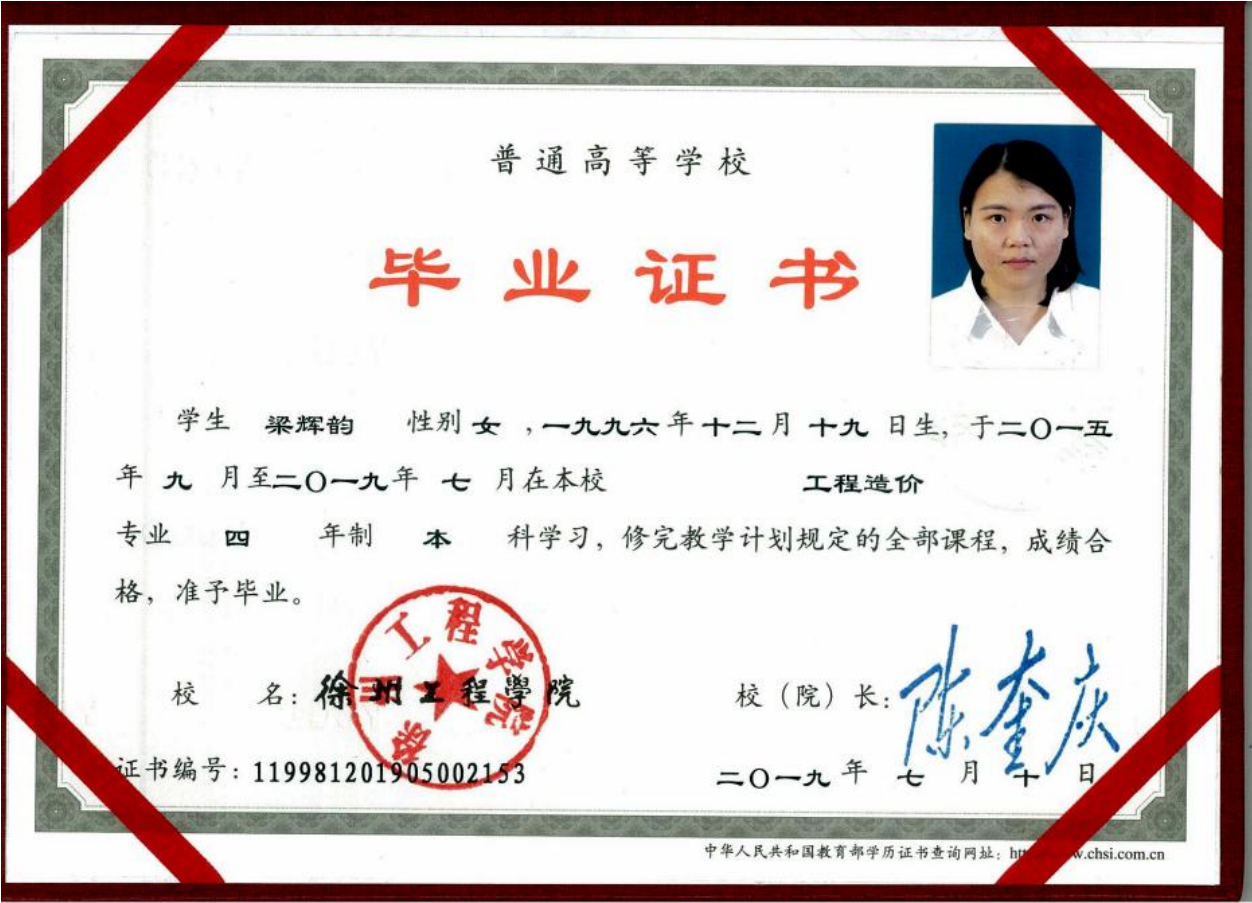 普通高等学校
毕业证书
学生 梁辉韵 性别 女 ,一九九六年十二月 十九 日生, 于二〇一五
年 九 月至二〇一九年 七 月在本校 工程造价
专业 四 年制 本 科学习, 修完教学计划规定的全部课程, 成绩合
格, 准予毕业。
徐州工程学院
校 名: 徐州工程學院 校 (院) 长: 陈奎庆
证书编号: 119981201905002153 二〇一九年 七 月 十 日
中华人民共和国教育部学历证书查询网址: w.chsi.com.cn